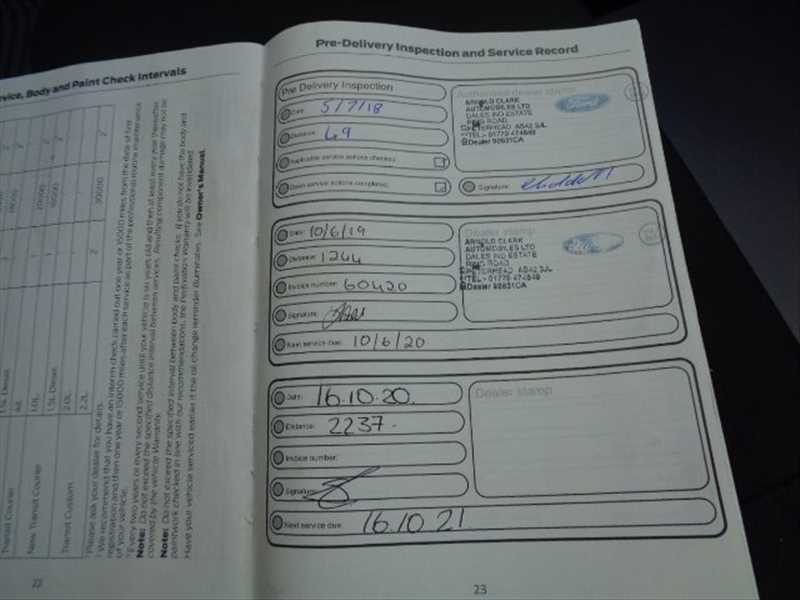 rvice, Body and Paint Check Intervals
1.5L Diesel
All
1.0L
1.5L Diesel
2.0L
2.2L
Transit Courier
New Transit Courier
Transit Custom
20000
2
Please ask your dealer for details.
We recommend that you have an interim check, carried out one year or 15000 miles from the date of first
registration and then one year or 15000 miles after each service as part of the professional routine maintenance
of your vehicle.
Every two years or every second service until your vehicle is six years old and then at least every year thereafter.
Note: Do not exceed the specified distance interval between services. Resulting component damage may not be
covered by the vehicle Warranty.
Note: Do not exceed the specified interval between body and paint checks. If you do not have the body and
paintwork checked in line with our recommendations, the Perforation Warranty will be invalidated.
Have your vehicle serviced earlier if the oil change reminder illuminates. See Owner's Manual.
22
Pre-Delivery Inspection and Service Record
Pre Delivery Inspection
Date: 5/7/18
Distance: 49
Applicable service actions checked:
Open service actions completed:
Authorised dealer stamp
ARNOLD CLARK
AUTOMOBILES LTD
DALES IND ESTATE
RING ROAD
PETERHEAD AB42 3JL
TEL:- 01779 474849
Dealer 98631CA
Ford
Signature:
Date: 10/6/19
Distance: 1244
Invoice number: 60420
Signature:
Next service due: 10/6/20
Dealer stamp
ARNOLD CLARK
AUTOMOBILES LTD
DALES IND ESTATE
RING ROAD
PETERHEAD AB42 3JL
TEL:- 01779 474849
Dealer 98631CA
Date: 16.10.20.
Distance: 2237.
Invoice number:
Signature:
Next service due: 16.10.21
Dealer stamp
23